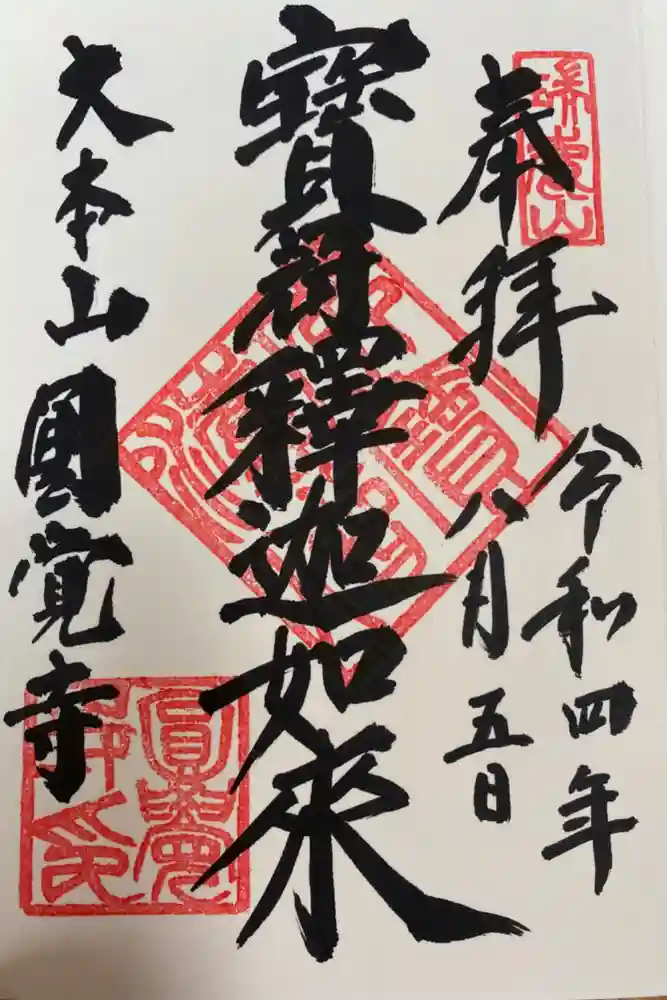 瑞鹿山
奉拝
令和四年
八月五日
寶冠釋迦如來
大本山圓覚寺
圓覺寺印